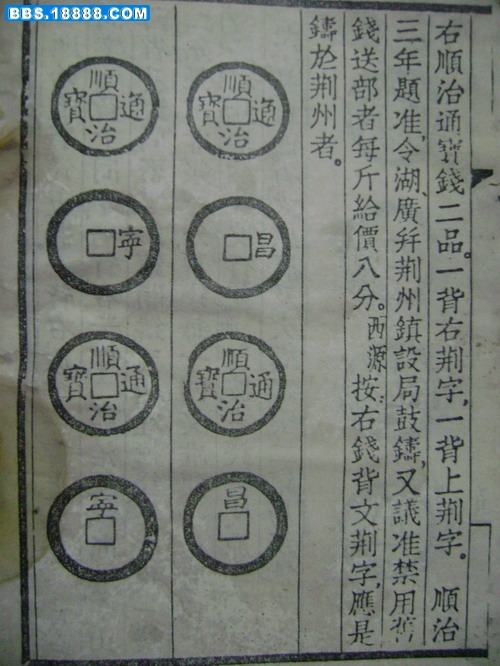 BBS.18888.COM
右順治通寶錢二品。一背右荆字,一背上荆字。 順治
三年題准,令湖、廣幷荆州鎮設局鼓鑄,又議准禁用舊
錢送部者每斤給價八分。西源按:右錢背文荆字,應是
鑄於荆州者。
順治通寶
昌
順治通寶
昌
順治通寶
寧
順治通寶
寧